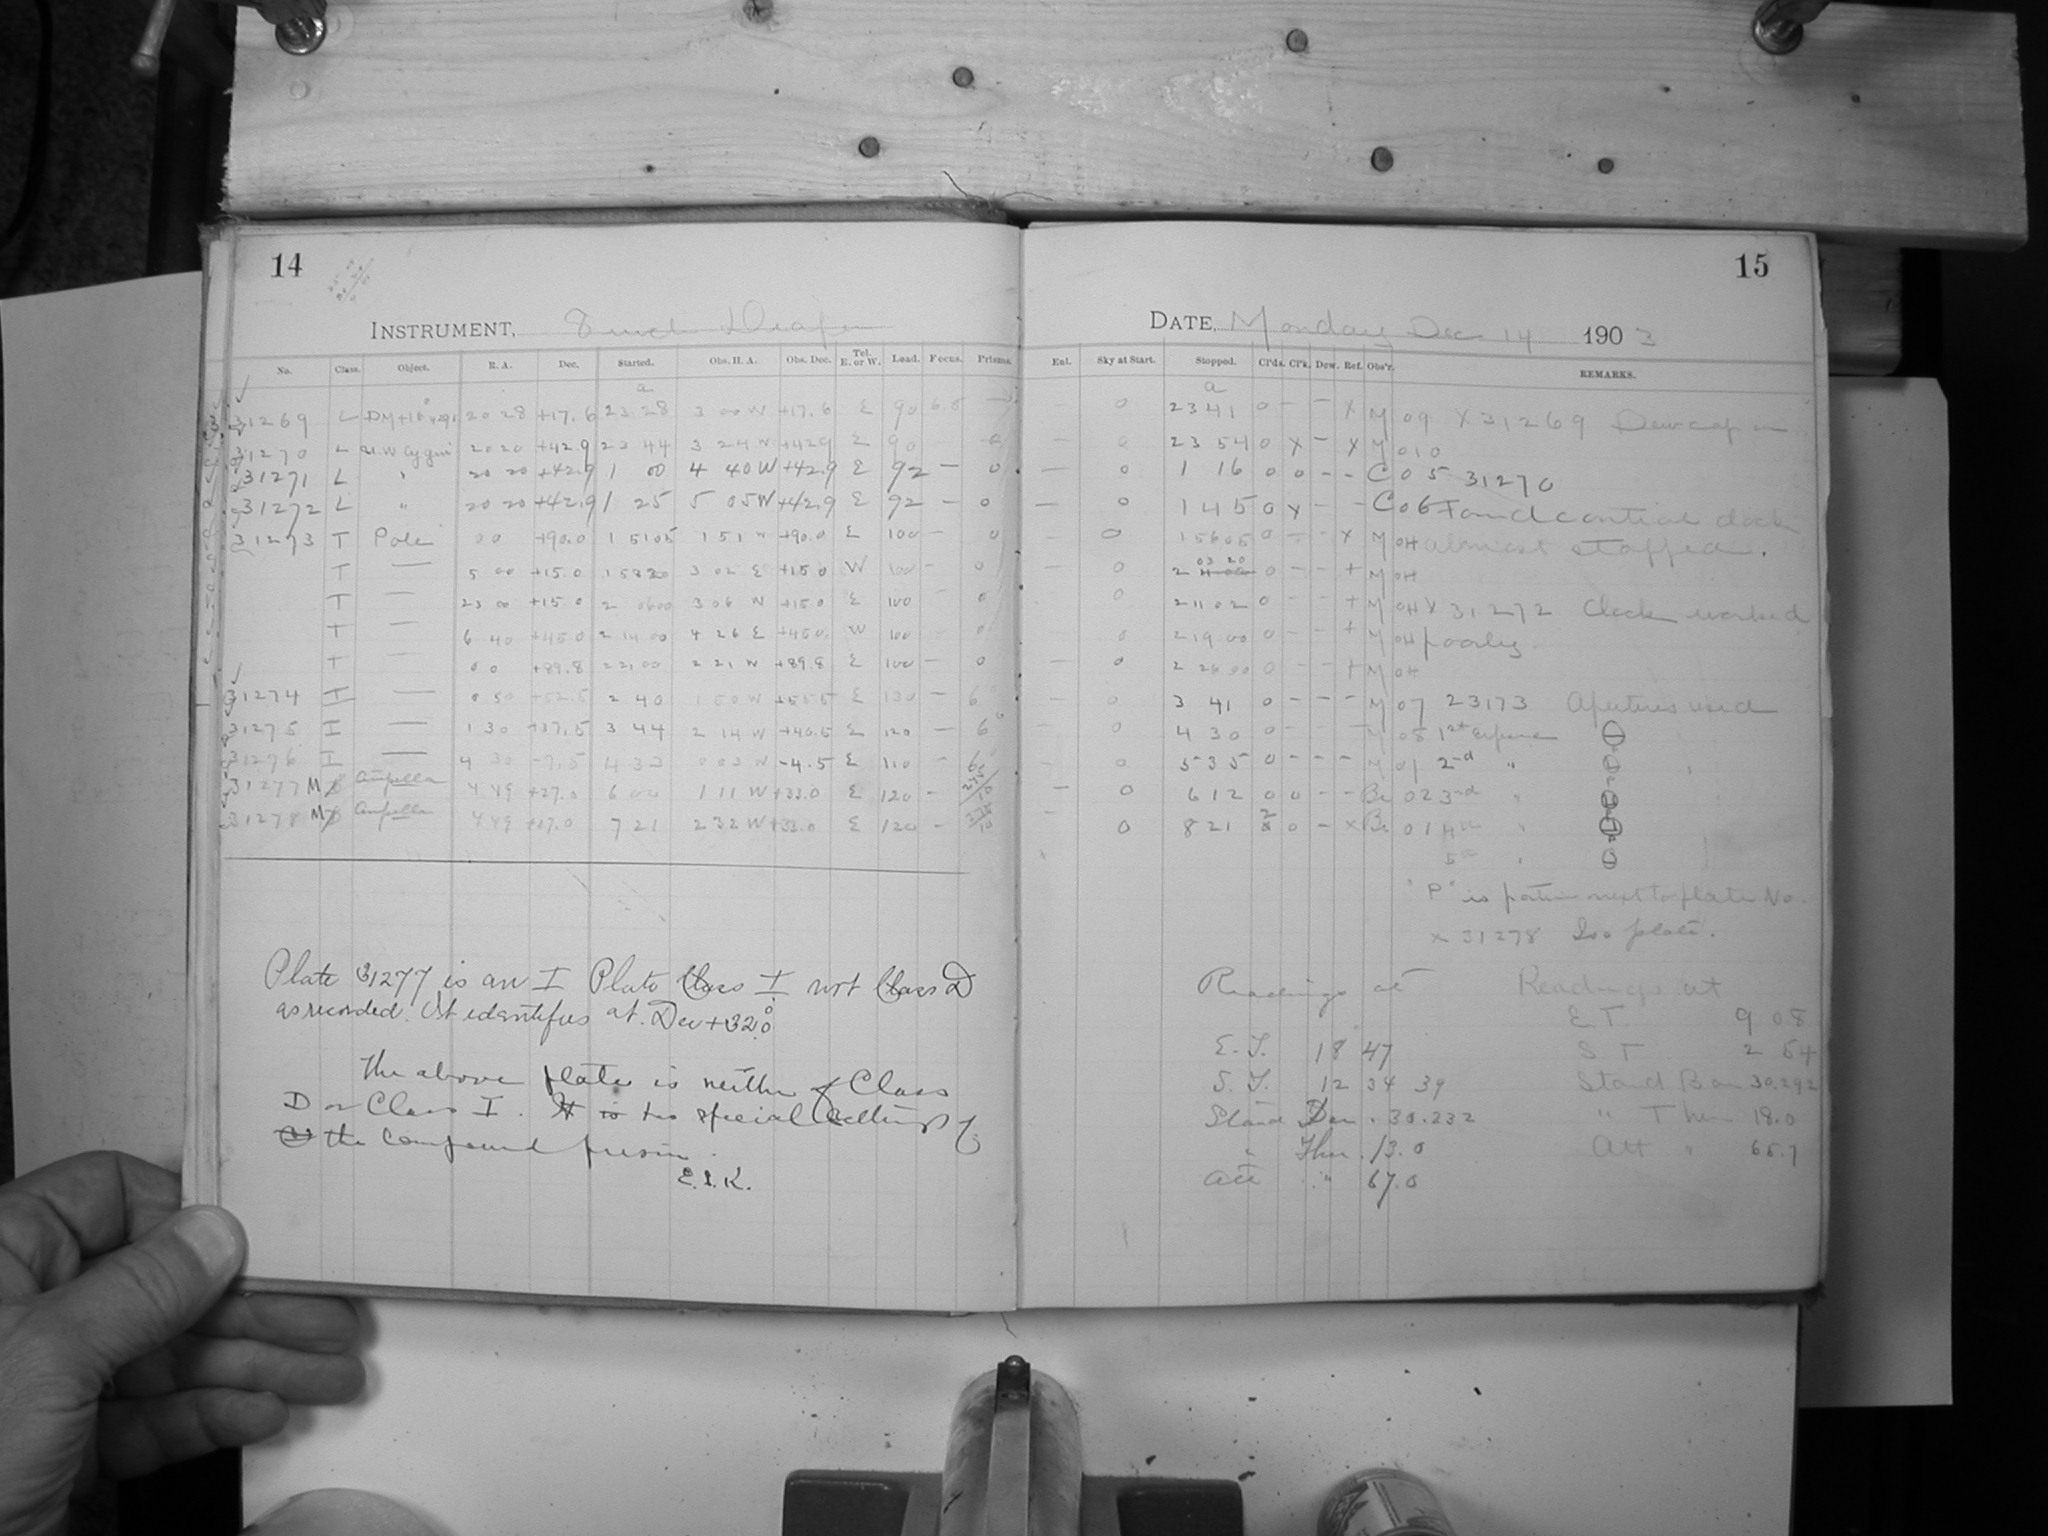 14
INSTRUMENT, 8 inch Draper
No. Class. Object. R. A. Dec. Started. Obs. H. A. Obs. Dec. Tel. E. or W. Lead. Focus. Prisms.
a
31269 L DM+16° 20 28 +17.6 23 28 3 00 W +17.6 E 90 6.5
31270 L U.W Cygni 20 20 +42.9 23 44 3 24 W +42.9 E 90 0
31271 L " 20 20 +42.9 1 00 4 40 W +42.9 E 92 – 0
31272 L " 20 20 +42.9 1 25 5 05 W +42.9 E 92 – 0
31273 T Pole 0 0 +90.0 1 51 05 1 51 W +90.0 E 100 – 0
T — 5 00 +15.0 1 58 20 3 02 E +15.0 W 100 – 0
T — 23 00 +15.0 2 06 00 3 06 W +15.0 E 100 0
T — 6 40 +45.0 2 14 00 4 26 E +45.0 W 100 0
T — 0 0 +89.8 2 21 00 2 21 W +89.8 E 100 – 0
31274 I — 0 50 +52.5 2 40 1 50 W +55.5 E 130 – 6
31275 I — 1 30 +37.5 3 44 2 14 W +40.5 E 120 – 6
31276 I — 4 30 -7.5 4 33 0 03 W -4.5 E 110 – 6
31277 M Capella 4 49 +27.0 6 00 1 11 W +33.0 E 120 –
31278 M Capella 4 49 +27.0 7 21 2 32 W +33.0 E 120 –
Plate 31277 is an I Plate Class I not Class D
as recorded. It identifies at. Dec +32.°0
The above plate is neither of Class
D or Class I. It is two special settings of
the compound prism.
E.S.K.
15
DATE, Monday Dec 14 1903
Ent. Sky at Start. Stopped. Cl'ds. Cl'k. Dew. Ref. Obs'r. REMARKS.
a
– 0 23 41 0 – – X M 09 X 31269 Dewcap on
– 0 23 54 0 X – X M 010
— 0 1 16 0 0 – – C 05 31270
— 0 1 45 0 X – – C 06 Found control clock
– 0 1 56 05 0 – – X M OH almost stopped.
– 0 2 03 20 0 – – + M OH
0 2 11 02 0 – – + M OH X 31272 Clock worked
– 0 2 19 00 0 – – + M OH poorly.
— 0 2 26 00 0 – – + M OH
– 0 3 41 0 – – – M 07 23173 Apertures used
– 0 4 30 0 – – – M 08 1st exposure
– 0 5 35 0 – – – M 01 2nd "
– 0 6 12 0 0 – – Be 02 3rd "
– 0 8 21 2 0 – X Be 01 4th "
5th "
"P" is portion next to plate No.
x 31278 Iso plate.
Readings at
E.T. 18 47
S.T. 12 34 39
Stand Bar. 30.232
" Ther. 13.0
Att " 67.0
Readings at
E.T. 9 08
S T 2 54
Stand Bar 30.292
" Ther 18.0
Att " 65.7